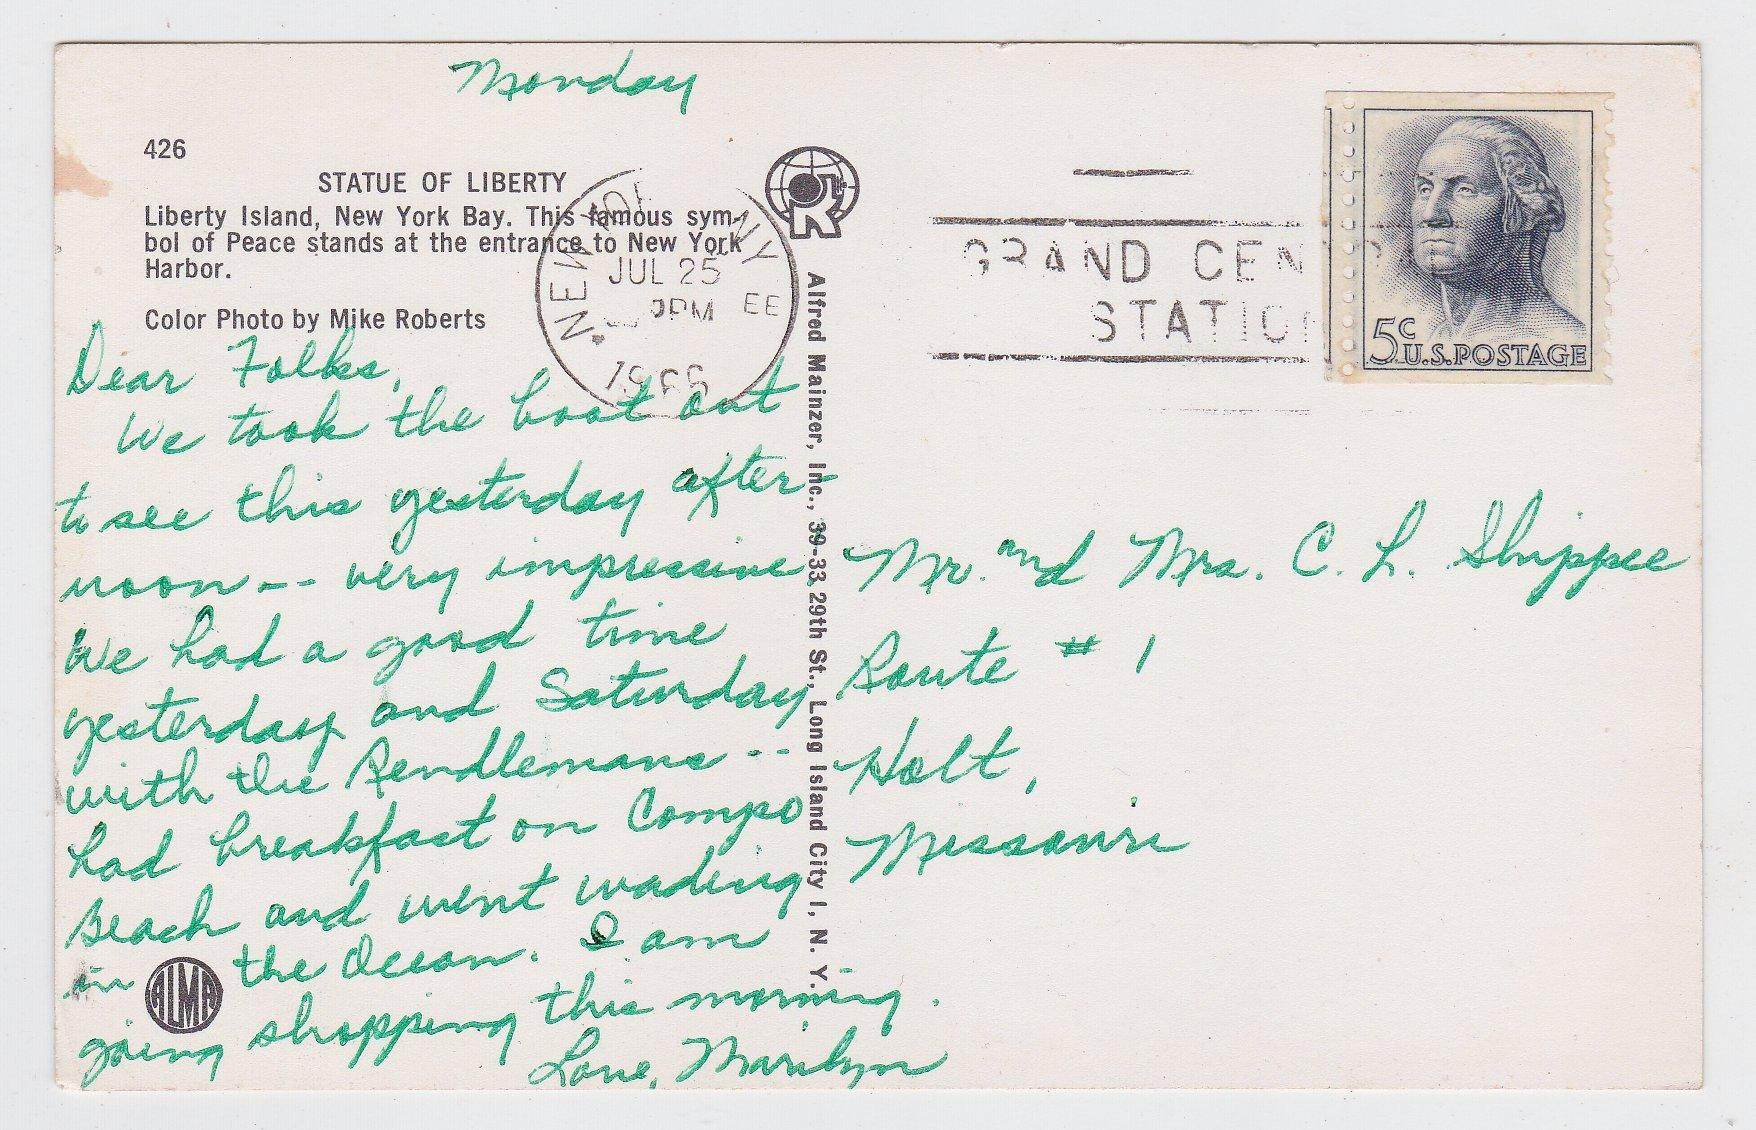 Monday
426
STATUE OF LIBERTY
Liberty Island, New York Bay. This famous sym-
bol of Peace stands at the entrance to New York
Harbor.
Color Photo by Mike Roberts
Dear Folks,
We took the boat out
to see this yesterday after-
noon -- very impressive
We had a good time
yesterday and Saturday
with the Rendlemans --
had breakfast on Compo
Beach and went wading
in the Ocean. I am
going shopping this morning.
Love, Marilyn
ALMA
Alfred Mainzer, Inc., 39-33 29th St., Long Island City 1, N. Y.
NEW YORK NY
JUL 25
PM EE
1966
GRAND CENTR
STATION
5c
U.S. POSTAGE
Mr. and Mrs. C. L. Shippee
Route # 1
Holt,
Missouri